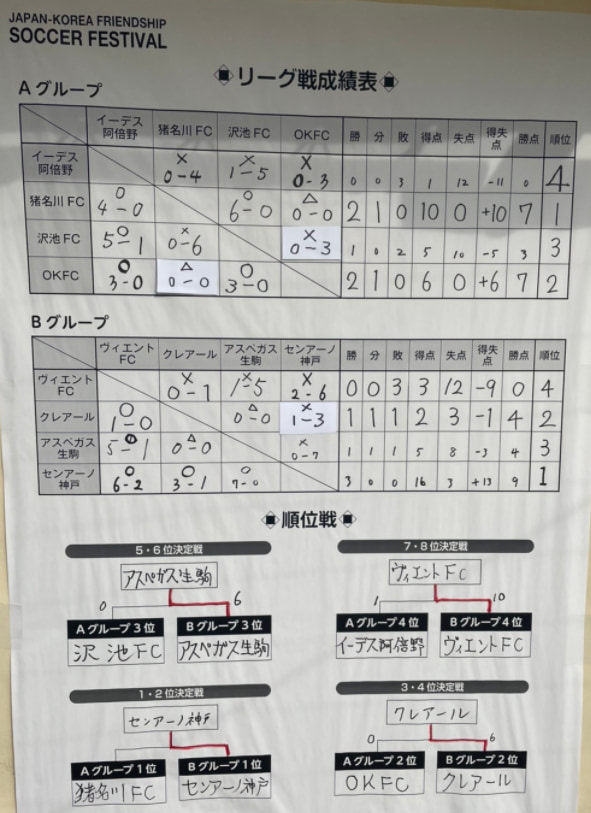 JAPAN-KOREA FRIENDSHIP
SOCCER FESTIVAL
リーグ戦成績表
Aグループ
イーデス阿倍野 猪名川FC 沢池FC OKFC 勝 分 敗 得点 失点 得失点 勝点 順位
イーデス阿倍野 × 0-4 × 1-5 × 0-3 0 0 3 1 12 -11 0 4
猪名川FC ○ 4-0 ○ 6-0 △ 0-0 2 1 0 10 0 +10 7 1
沢池FC ○ 5-1 × 0-6 × 0-3 1 0 2 5 10 -5 3 3
OKFC ○ 3-0 △ 0-0 ○ 3-0 2 1 0 6 0 +6 7 2
Bグループ
ヴィエントFC クレアール アスペガス生駒 センアーノ神戸 勝 分 敗 得点 失点 得失点 勝点 順位
ヴィエントFC × 0-1 × 1-5 × 2-6 0 0 3 3 12 -9 0 4
クレアール ○ 1-0 △ 0-0 × 1-3 1 1 1 2 3 -1 4 2
アスペガス生駒 ○ 5-1 △ 0-0 × 0-7 1 1 1 5 8 -3 4 3
センアーノ神戸 ○ 6-2 ○ 3-1 ○ 7-0 3 0 0 16 3 +13 9 1
順位戦
5・6位決定戦
アスペガス生駒
0 6
Aグループ3位 Bグループ3位
沢池FC アスペガス生駒
7・8位決定戦
ヴィエントFC
1 10
Aグループ4位 Bグループ4位
イーデス阿倍野 ヴィエントFC
1・2位決定戦
センアーノ神戸
Aグループ1位 Bグループ1位
猪名川FC センアーノ神戸
3・4位決定戦
クレアール
0 6
Aグループ2位 Bグループ2位
OKFC クレアール